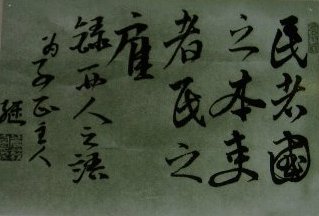 民者國
之本吏
者民之
雇
錄西人之語
为子正主人
继